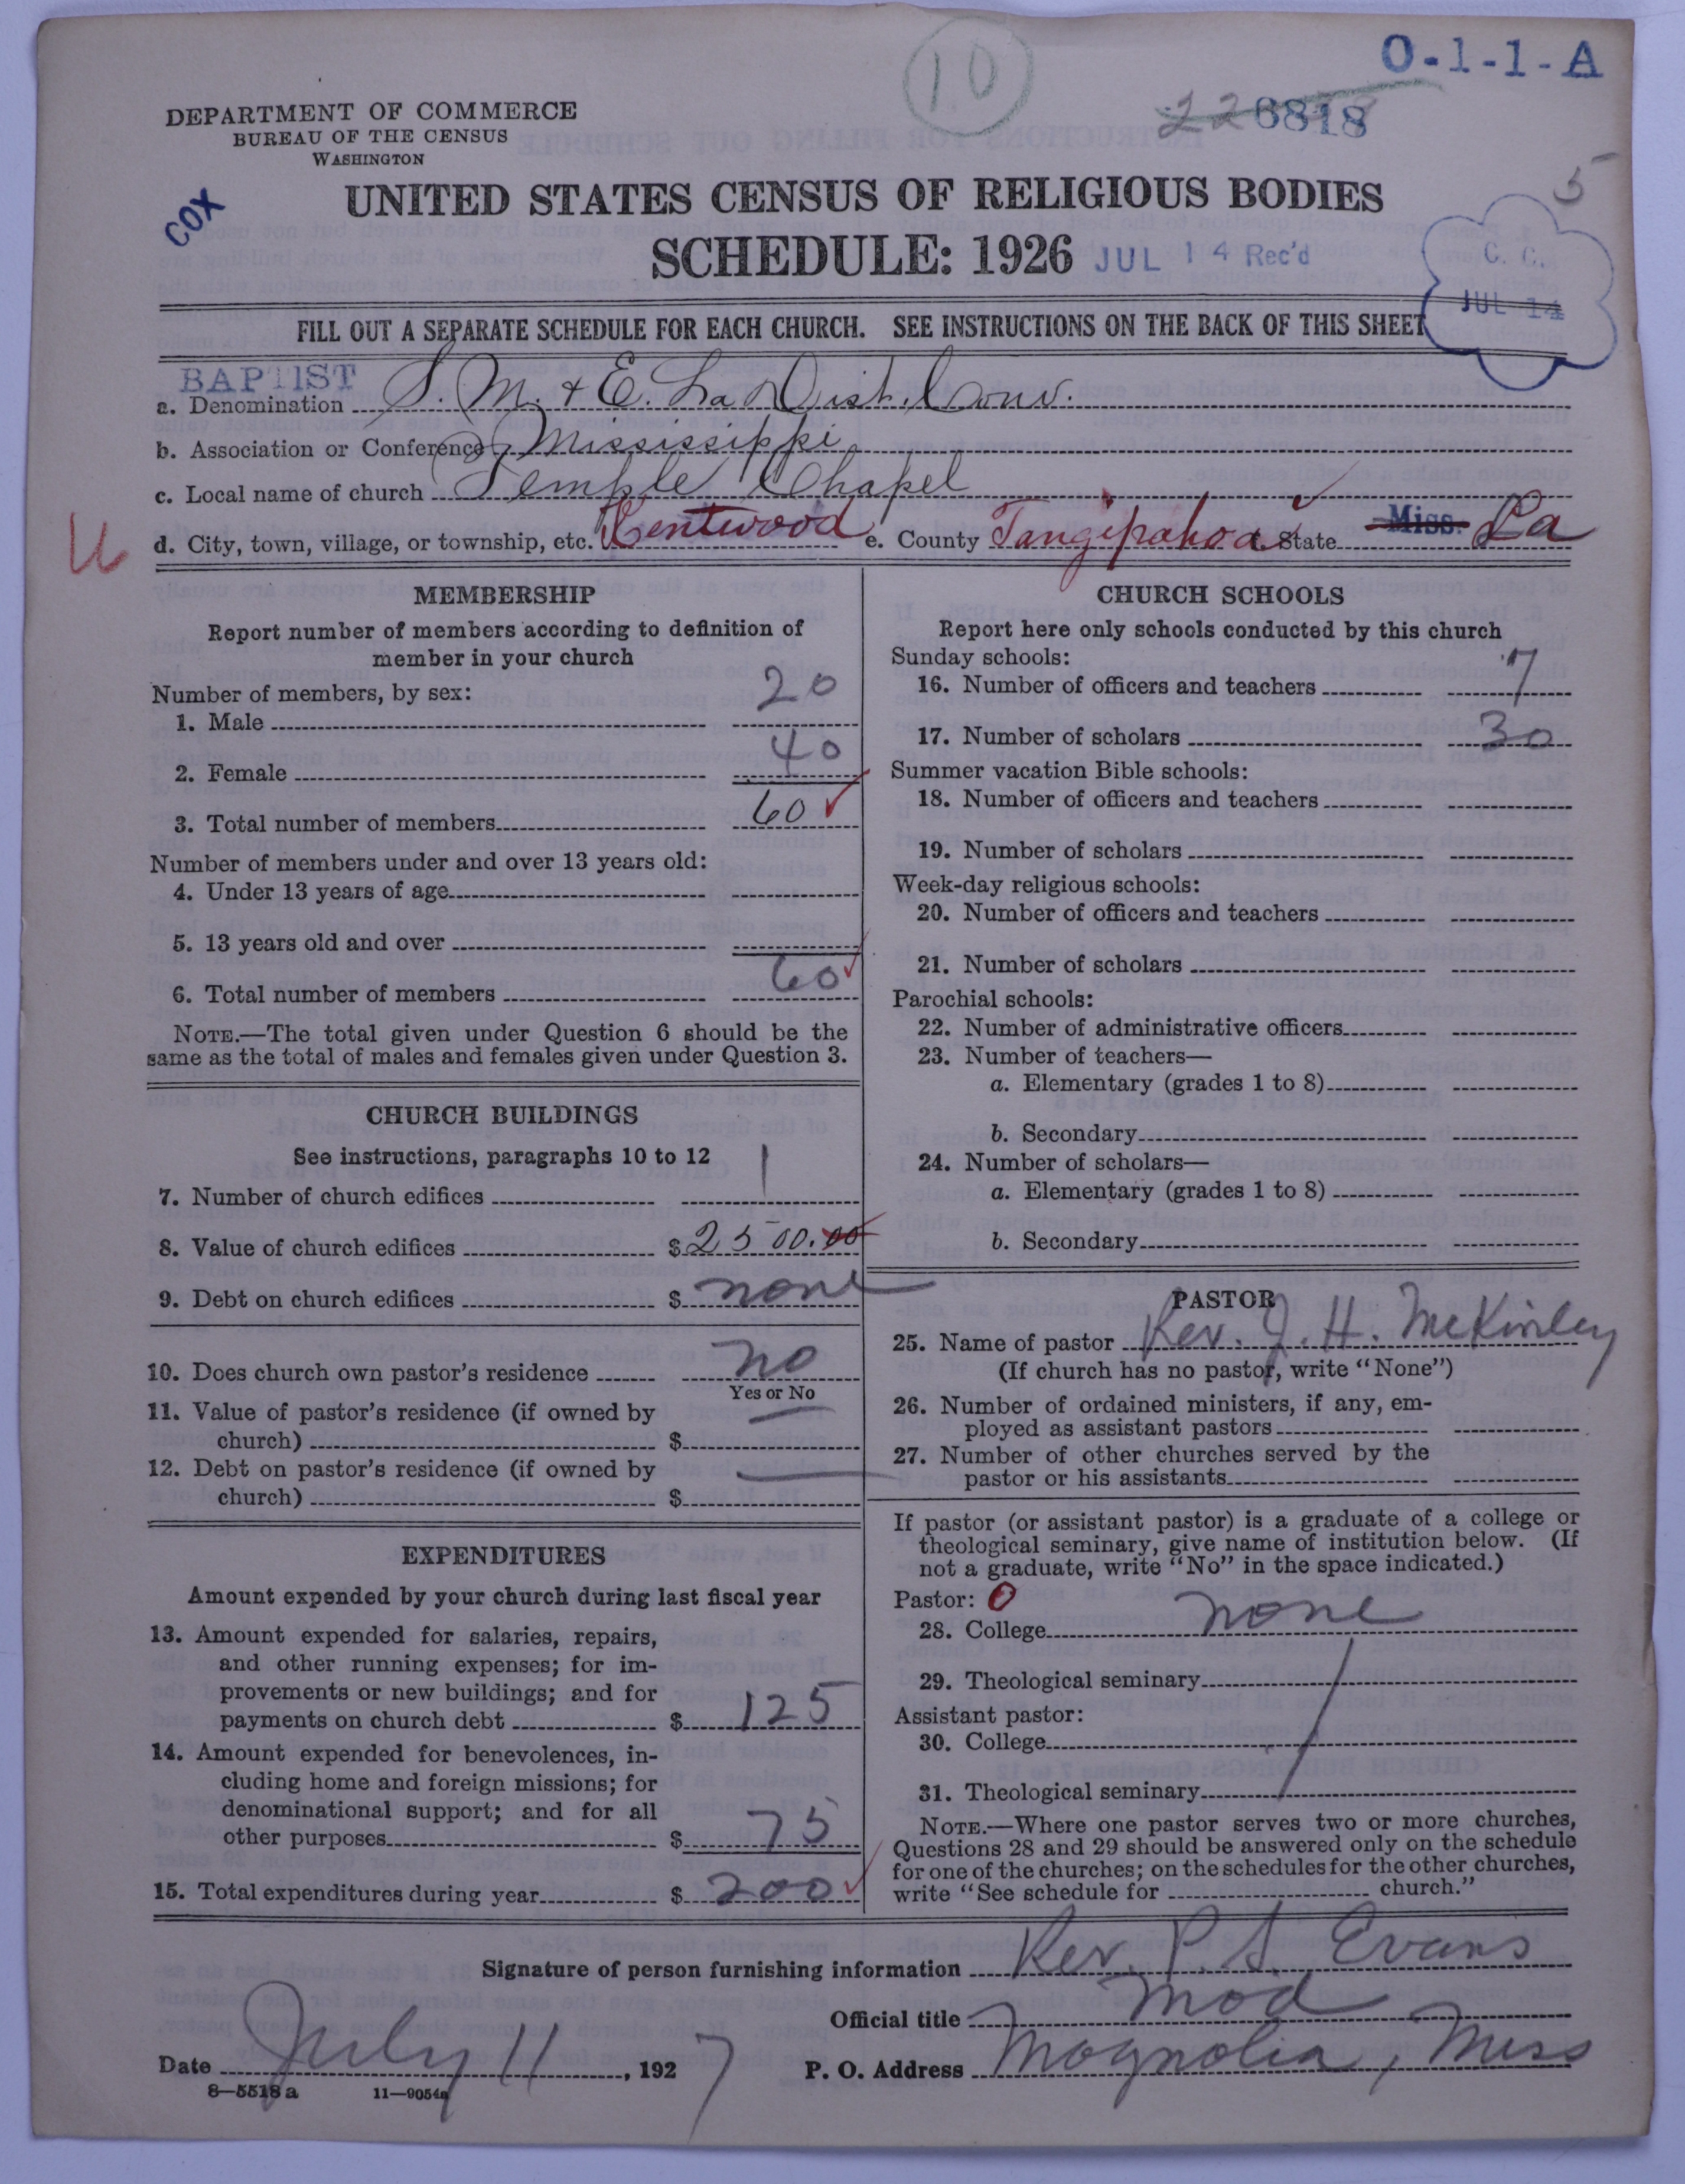 10
O-1-1-A
6818
DEPARTMENT OF COMMERCE
BUREAU OF THE CENSUS
WASHINGTON
COX
5
UNITED STATES CENSUS OF RELIGIOUS BODIES
SCHEDULE: 1926 JUL 14 Rec'd
C. C.
JUL 14
FILL OUT A SEPARATE SCHEDULE FOR EACH CHURCH. SEE INSTRUCTIONS ON THE BACK OF THIS SHEET
BAPTIST
a. Denomination S. M. & E. La Dist. Conv.
b. Association or Conference Mississippi
c. Local name of church Temple Chapel
d. City, town, village, or township, etc. Kentwood e. County Tangipahoa State Miss. La
MEMBERSHIP
Report number of members according to definition of
member in your church
Number of members, by sex:
1. Male 20
2. Female 40
3. Total number of members 60
Number of members under and over 13 years old:
4. Under 13 years of age
5. 13 years old and over
6. Total number of members 60
NOTE.—The total given under Question 6 should be the
same as the total of males and females given under Question 3.
CHURCH BUILDINGS
See instructions, paragraphs 10 to 12
7. Number of church edifices 1
8. Value of church edifices $ 2500.00
9. Debt on church edifices $ none
10. Does church own pastor's residence no
Yes or No
11. Value of pastor's residence (if owned by
church) $ —
12. Debt on pastor's residence (if owned by
church) $ —
EXPENDITURES
Amount expended by your church during last fiscal year
13. Amount expended for salaries, repairs,
and other running expenses; for im-
provements or new buildings; and for
payments on church debt $ 125
14. Amount expended for benevolences, in-
cluding home and foreign missions; for
denominational support; and for all
other purposes $ 75
15. Total expenditures during year $ 200
CHURCH SCHOOLS
Report here only schools conducted by this church
Sunday schools:
16. Number of officers and teachers 7
17. Number of scholars 30
Summer vacation Bible schools:
18. Number of officers and teachers
19. Number of scholars
Week-day religious schools:
20. Number of officers and teachers
21. Number of scholars
Parochial schools:
22. Number of administrative officers
23. Number of teachers—
a. Elementary (grades 1 to 8)
b. Secondary
24. Number of scholars—
a. Elementary (grades 1 to 8)
b. Secondary
PASTOR
25. Name of pastor Rev. J. H. McKinley
(If church has no pastor, write "None")
26. Number of ordained ministers, if any, em-
ployed as assistant pastors
27. Number of other churches served by the
pastor or his assistants
If pastor (or assistant pastor) is a graduate of a college or
theological seminary, give name of institution below. (If
not a graduate, write "No" in the space indicated.)
Pastor: 0
28. College none
29. Theological seminary
Assistant pastor:
30. College
31. Theological seminary
NOTE.—Where one pastor serves two or more churches,
Questions 28 and 29 should be answered only on the schedule
for one of the churches; on the schedules for the other churches,
write "See schedule for church."
Signature of person furnishing information Rev. P. S. Evans
Official title Mod
Date July 11, 1927 P. O. Address Magnolia, Miss
8—5518 a 11—9054a